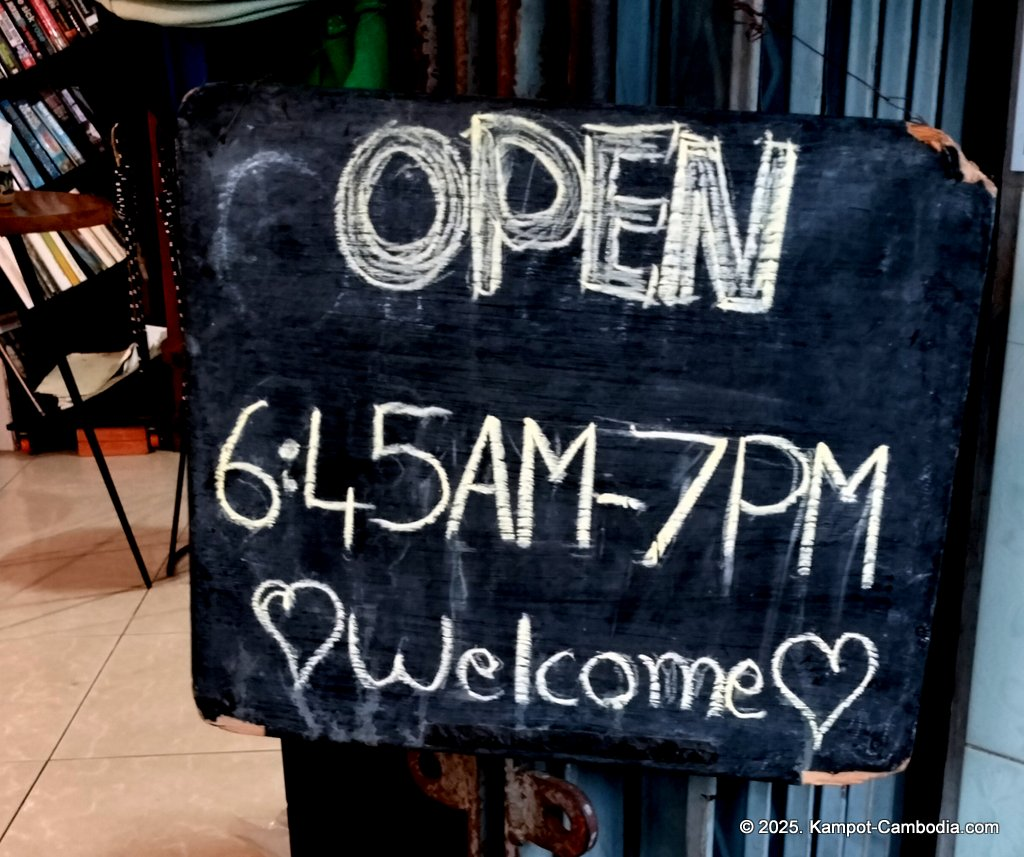 OPEN
6:45AM-7PM
♡Welcome♡
© 2025. Kampot-Cambodia.com